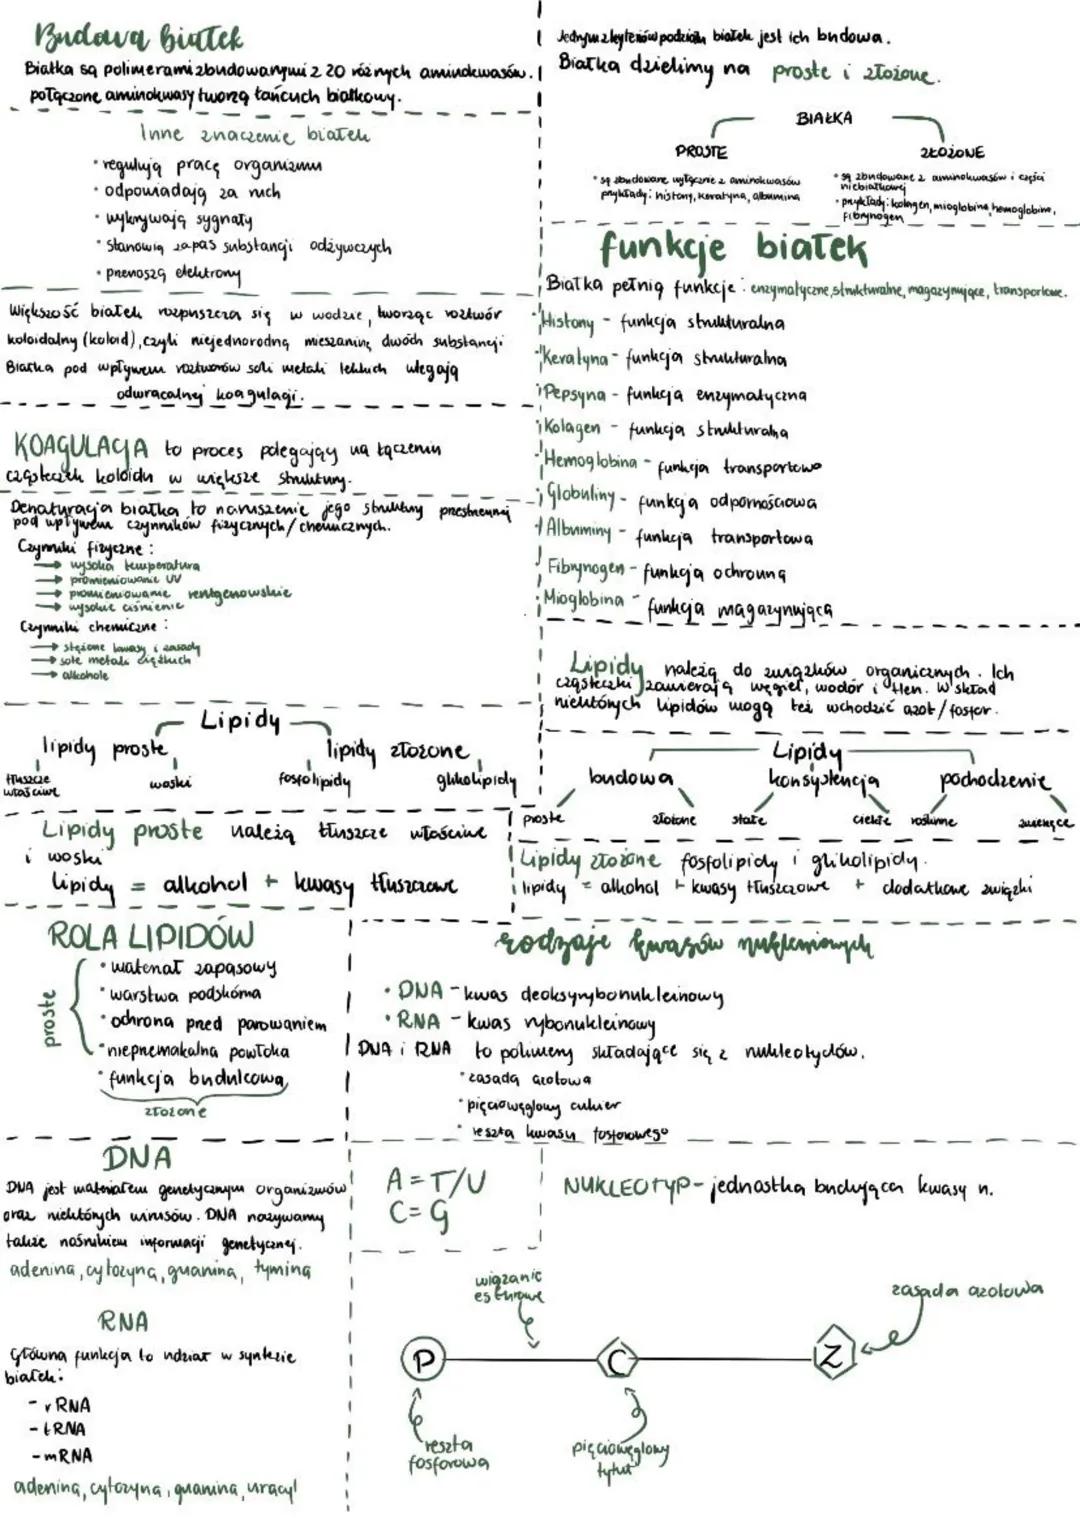 Budowa białek
Białka są polimerami zbudowanymi z 20 różnych aminokwasów.
połączone aminokwasy tworzą łańcuch białkowy.
Inne znaczenie białek
• regulują pracę organizmu
• odpowiadają za ruch
• wykrywają sygnały
• stanowią zapas substancji odżywczych
• przenoszą elektrony
Większość białek rozpuszcza się w wodzie, tworząc roztwór
koloidalny (koloid), czyli niejednorodną mieszaninę dwóch substancji.
Białka pod wpływem roztworów soli metali lekkich ulegają
odwracalnej koagulacji.
KOAGULACJA to proces polegający na łączeniu
cząsteczek koloidu w większe struktury.
Denaturacja białka to naruszenie jego struktury przestrzennej
pod wpływem czynników fizycznych/chemicznych.
Czynniki fizyczne:
→ wysoka temperatura
→ promieniowanie UV
→ promieniowanie rentgenowskie
→ wysokie ciśnienie
Czynniki chemiczne:
→ stężone kwasy i zasady
→ sole metali ciężkich
→ alkohole
Lipidy
lipidy proste
lipidy złożone
tłuszcze
właściwe
woski
fosfolipidy
glikolipidy
Lipidy proste należą tłuszcze właściwe
i woski
lipidy = alkohol + kwasy tłuszczowe
ROLA LIPIDÓW
proste
• materiał zapasowy
• warstwa podskórna
• ochrona przed parowaniem
• nieprzemakalna powłoka
• funkcja budulcowa
złożone
DNA
DNA jest materiałem genetycznym organizmów
oraz niektórych wirusów. DNA nazywamy
także nośnikiem informacji genetycznej.
adenina, cytozyna, guanina, tymina
RNA
Główna funkcja to udział w syntezie
białek:
- rRNA
- tRNA
- mRNA
adenina, cytozyna, guanina, uracyl
Jednym z kryteriów podziału białek jest ich budowa.
Białka dzielimy na proste i złożone.
BIAŁKA
PROSTE
ZŁOŻONE
• są zbudowane wyłącznie z aminokwasów
przykłady: histony, keratyna, albumina
• są zbudowane z aminokwasów i części
niebiałkowej
• przykłady: kolagen, mioglobina, hemoglobina,
fibrynogen
funkcje białek
Białka pełnią funkcje: enzymatyczne, strukturalne, magazynujące, transportowe.
Histony - funkcja strukturalna
Keratyna - funkcja strukturalna
Pepsyna - funkcja enzymatyczna
Kolagen - funkcja strukturalna
Hemoglobina - funkcja transportowa
Globuliny - funkcja odpornościowa
Albuminy - funkcja transportowa
Fibrynogen - funkcja ochronna
Mioglobina - funkcja magazynująca
Lipidy należą do związków organicznych. Ich
cząsteczki zawierają węgiel, wodór i tlen. W skład
niektórych lipidów mogą też wchodzić azot/fosfor.
Lipidy
budowa
konsystencja
pochodzenie
proste
złożone
stałe
ciekłe
roślinne
zwierzęce
Lipidy złożone fosfolipidy i glikolipidy.
lipidy = alkohol + kwasy tłuszczowe + dodatkowe związki
rodzaje kwasów nukleinowych
• DNA - kwas deoksyrybonukleinowy
• RNA - kwas rybonukleinowy
DNA i RNA to polimery składające się z nukleotydów.
• zasada azotowa
• pięciowęglowy cukier
• reszta kwasu fosforowego
A = T/U
C = G
NUKLEOTYP - jednostka budująca kwasy n.
wiązanie
estrowe
zasada azotowa
P
C
Z
reszta
fosforowa
pięciowęglowy